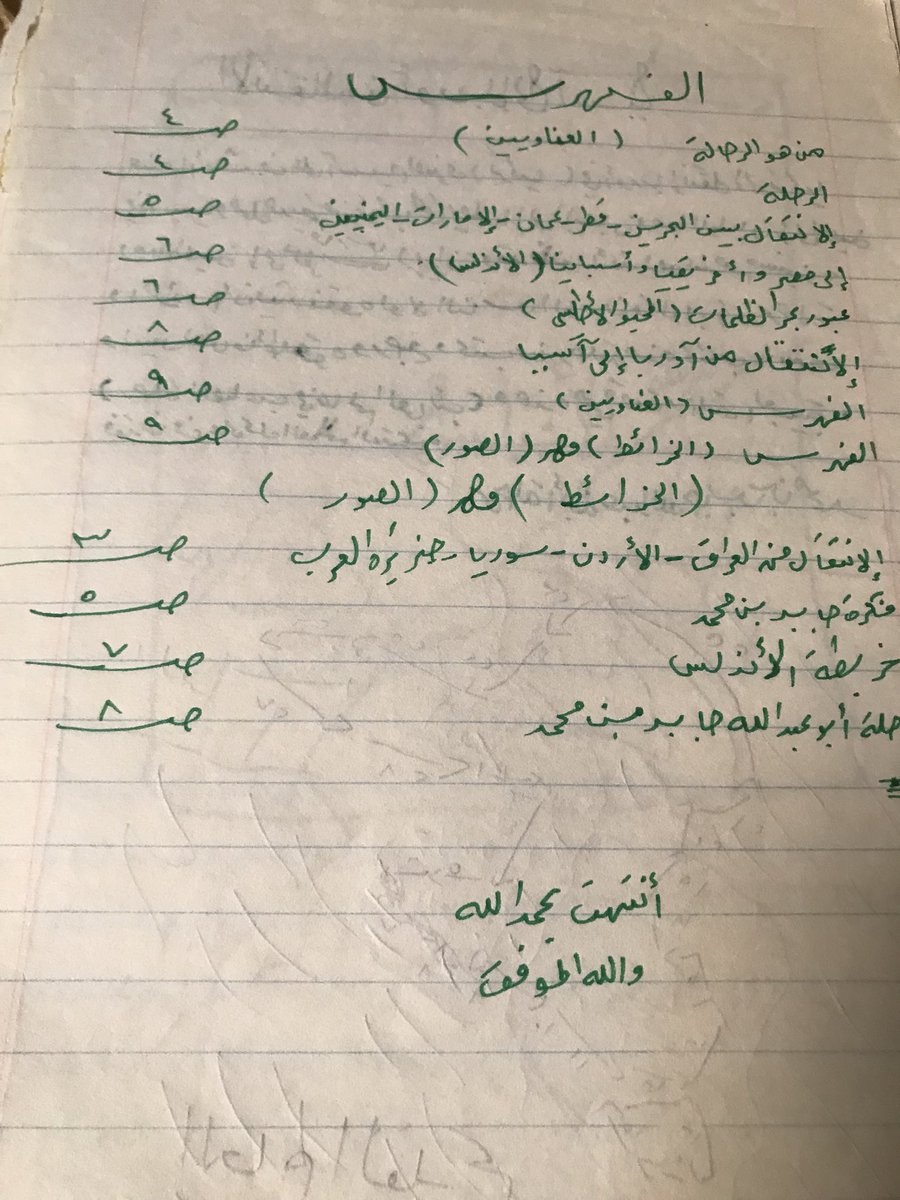 الفهرس
من هو الرحالة (العناويين) صـ ٤
الرحلة صـ ٤
إلانتقال بين البحرين - قطر - عمان - الإمارات - اليمن صـ ٥
إلى مصر وأفريقيا وأسبانيا (الأندلس). صـ ٦
عبور بحر الظلمات (المحيط الأطلسي) صـ ٦
إلأنتقال من آوربا إلى آسيا صـ ٨
الفهرس (العناويين) صـ ٩
الفهرس (الخرائط) وهم (الصور) صـ ٩
(الخرائط) وهم (الصور)
إلانتقال من العراق - الأردن - سوريا - جزيرة العرب صـ ٣
فكرة جابر بن محمد صـ ٥
خريطة الأندلس صـ ٧
أبو عبدالله جابر بن محمد صـ ٨
أنتهت بحمد الله
والله الموفق